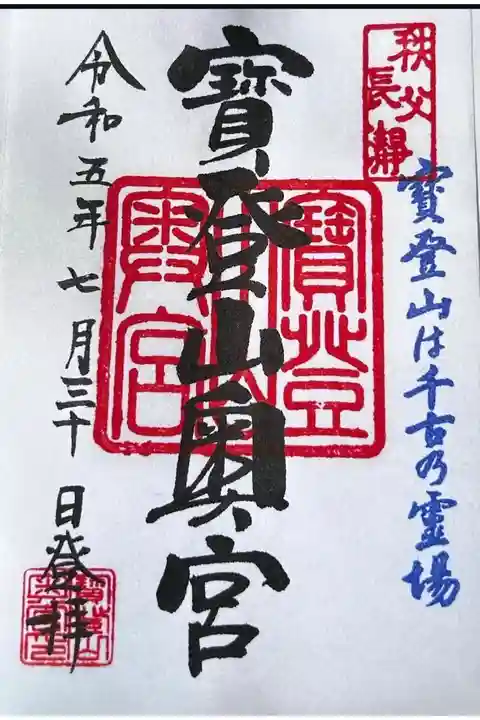 秩父
長瀞
寶登山は千古の霊場
寶登山奥宮
寶登山
奥宮
令和五年七月三十日登拝